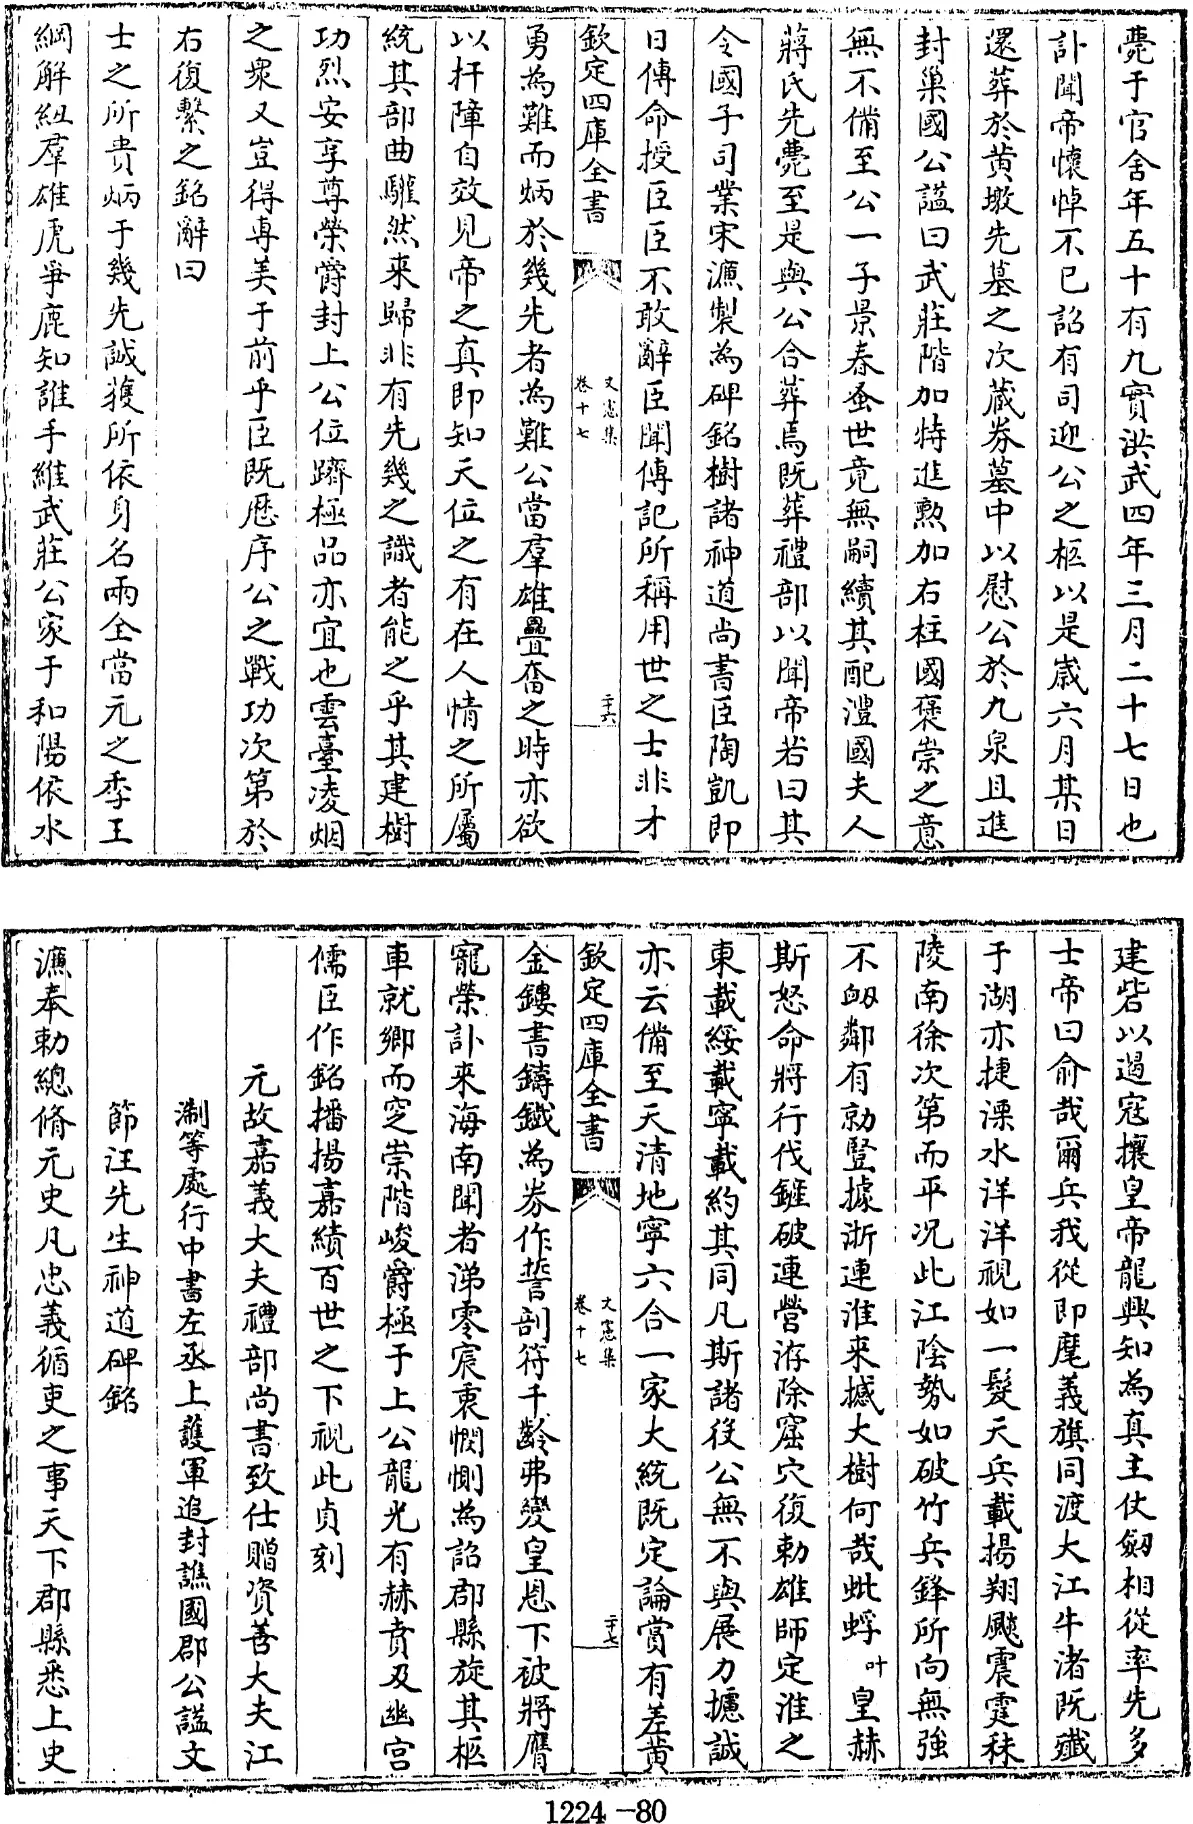 薨于官舍年五十有九實洪武四年三月二十七日也
訃聞帝懷悼不已詔有司迎公之柩以是歲六月某日
還葬於黄墩先墓之次蔵券墓中以慰公於九泉且進
封巢國公諡曰武莊階加特進勲加右柱國褒崇之意
無不備至公一子景春蚤世竟無嗣續其配澧國夫人
蔣氏先薨至是與公合葬焉既葬禮部以聞帝若曰其
令國子司業宋濂製為碑銘樹諸神道尚書臣陶凱即
日傳命授臣臣不敢辭臣聞傳記所稱用世之士非才
欽定四庫全書
文憲集
卷十七
二十六
勇為難而炳於幾先者為難公當羣雄疊奮之時亦欲
以扞障自效見帝之真即知天位之有在人情之所屬
統其部曲驩然來歸非有先幾之識者能之乎其建樹
功烈安享尊榮爵封上公位躋極品亦宜也雲臺凌烟
之衆又豈得專美于前乎臣既歴序公之戰功次第於
右復繫之銘辭曰
士之所貴炳于幾先誠獲所依身名兩全當元之季王
綱解紐羣雄虎爭鹿知誰手維武莊公家于和陽依水
建砦以遏寇攘皇帝龍興知為真主仗劒相從率先多
士帝曰俞哉爾兵我從即麾義旗同渡大江牛渚既殱
于湖亦捷溧水洋洋視如一髮天兵載揚翔飈震霆秣
陵南徐次第而平况此江陰勢如破竹兵鋒所向無強
不衂鄰有勍豎據浙連淮來撼大樹何哉蚍蜉叶皇赫
斯怒命將行伐鏟破連營洊除窟穴復勅雄師定淮之
東載綏載寧載約其同凡斯諸役公無不與展力攄誠
亦云備至天清地寧六合一家大統既定論賞有差黄
欽定四庫全書
文憲集
卷十七
二十七
金鏤書鑄鐵為券作誓剖符千齡弗變皇恩下被將膺
寵榮訃來海南聞者涕零宸衷憫惻為詔郡縣旋其柩
車就鄉而窆崇階峻爵極于上公龍光有赫賁及幽宫
儒臣作銘播揚嘉績百世之下視此貞刻
元故嘉義大夫禮部尚書致仕贈資善大夫江
淛等處行中書左丞上護軍追封譙國郡公諡文
節汪先生神道碑銘
濂奉勅總脩元史凡忠義循吏之事天下郡縣悉上史
1224-80